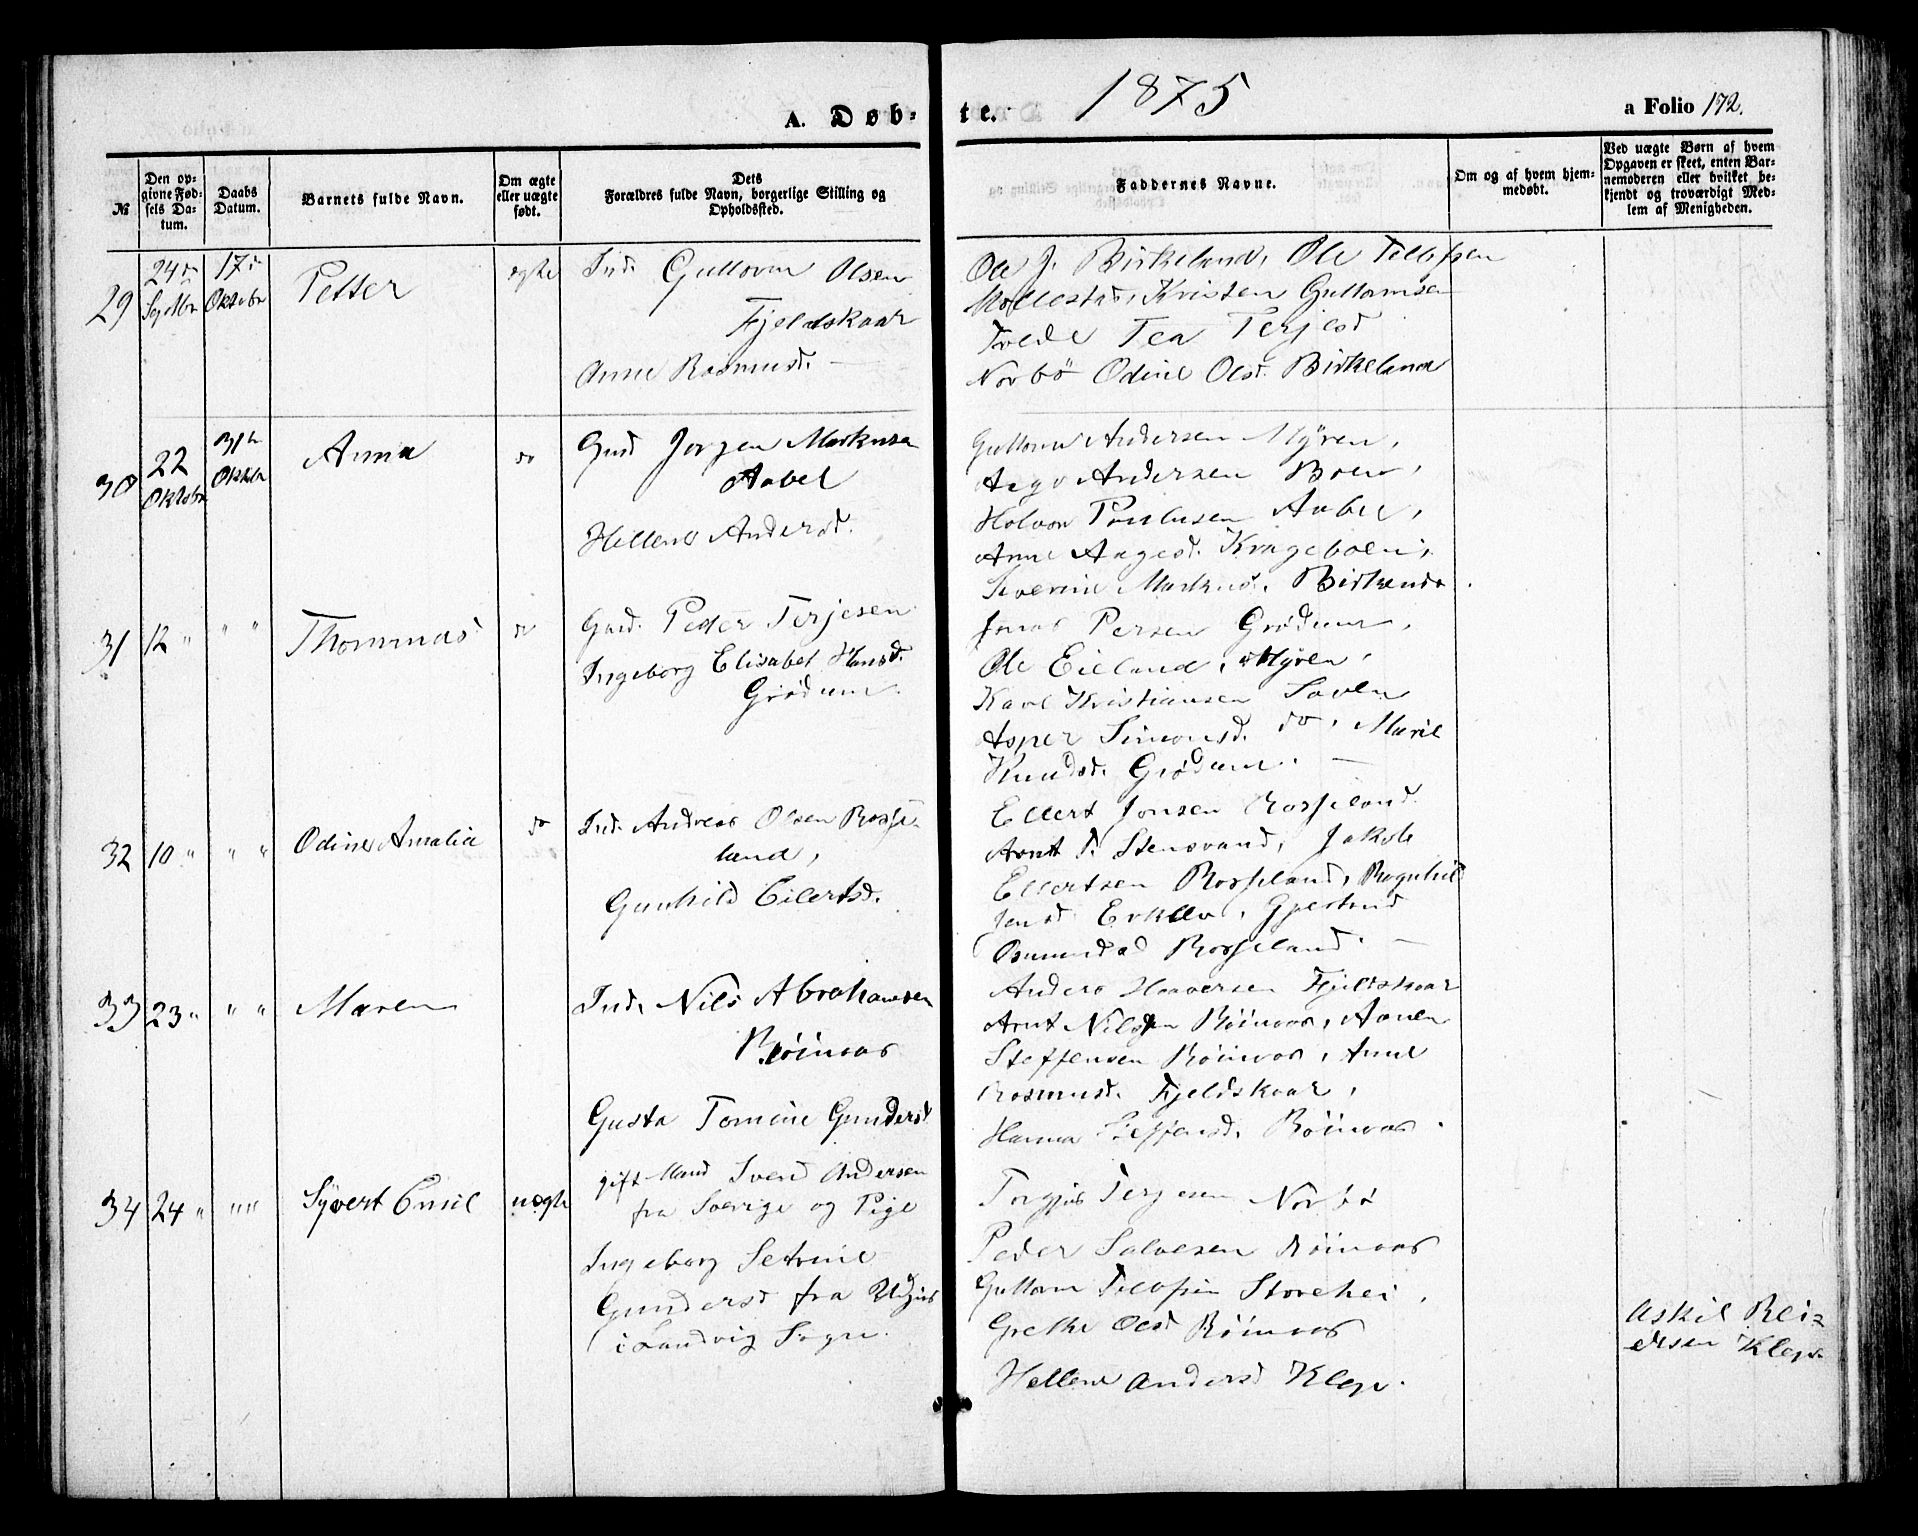 A. Døb-
te.
1875
a Folio 172.
№
Den op-
givne Fød-
sels Da-
tum.
Daabs
Datum.
Barnets fulde Navn.
Om ægte
eller uægte
født.
Dets
Forældres fulde Navn, borgerlige Stilling og
Opholdssted.
Faddernes Navne.
Om og af hvem hjem-
medøbt.
Ved uægte Børn af hvem
Opgaven er skeet, enten Bar-
nemoderen eller hvilket be-
kjendt og troværdigt Med-
lem af Menigheden.
29
24de
Septbr
17de
Oktobr
Petter
ægte
Ind. Guttorm Olsen
Fjeldskaar
Anne Rasmusd. —
Ole J. Birkeland, Ole Tellefsen
Mollestad, Kristen Guttormsen
Tvede Tea Terjesd
Norbö Odine Olsd. Birkeland
30
22
Oktobr
31te
Oktbr
Anna
do
Gmd Jorgen Markusen
Aabel
Hellene Andersd.
Guttorm Andersen Myren,
Aage Andersen Boen,
Halvor Poulusen Aabel,
Anne Aagesd. Krageboen,
Severine Markusd. Birkenes.
31
12 "
" "
Thommas
do
Gmd. Peder Terjesen
Ingeborg Elisabet Hansd.
Grödum.
Jonas Persen Grödum,
Ole Eieland, Myren,
Karl Kristiansen Saven
Asper Simonsd. do, Marie
Knudsd. Grödum. —
32
10 "
" "
Odine Amalia
do
Ind. Andreas Olsen Rosse-
land,
Gunhild Eilertsd.
Ellert Jonsen Rosseland.
Arnt T. Stensvand, Jakob
Ellertsen Rosseland, Ragnhild
Jensd Erklev, Gjertrud
Osmundsd Rosseland. —
33
23 "
" "
Maren
Ind. Nils Abrahamsen
Röinaas
Gusta Tomine Gundersd
Anders Haaversen Fjeldskaar
Arnt Nilsen Röinaas, Aanen
Steffensen Röinaas, Anne
Rasmusd. Fjeldskaar,
Hanna Steffensd. Röinaas.
34
24 "
" "
Syvert Emil
uægte
gift Mand Svend Andersen
fra Sverige og Pige
Ingeborg Setrine
Gundersd fra
i Landvig Sogn.
Torgjus Terjesen Norbö
Peder Salvesen Röinaas
Guttorm Tellefsen Storehei,
Grethe Olsd Röinaas
Hellene Andersd Klep.
Askil Rei-
ersen Klep.